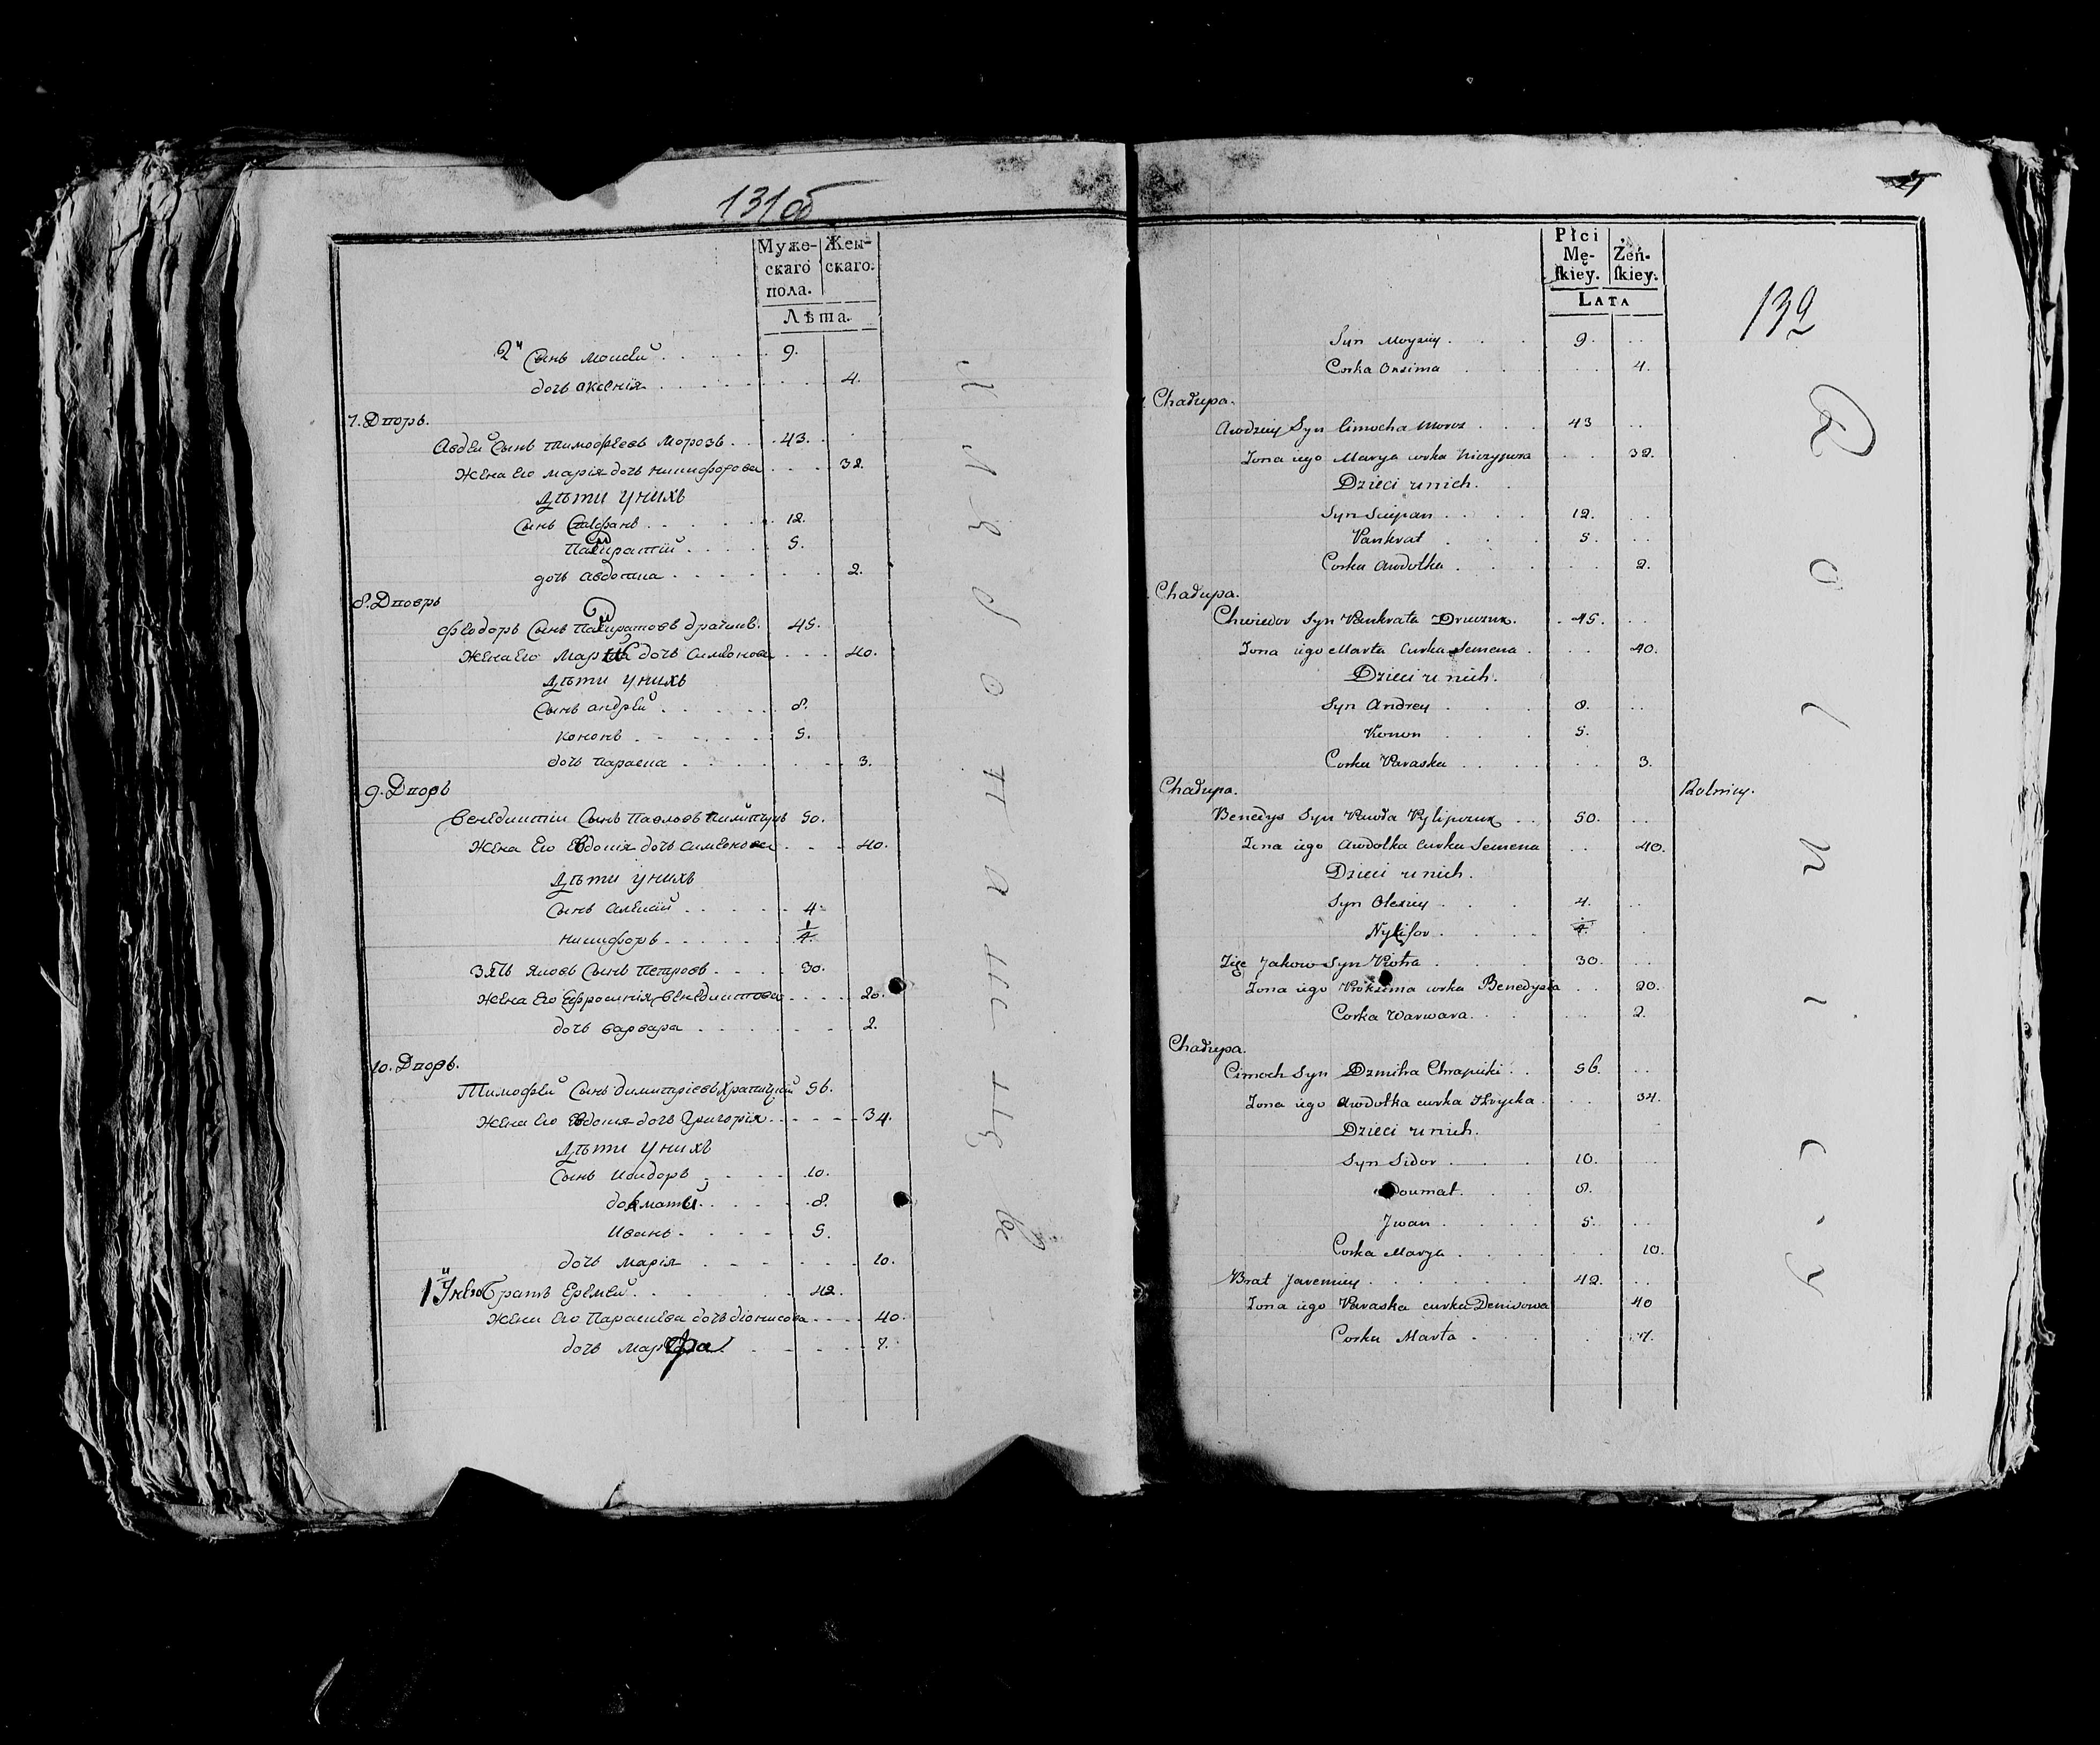 131об
Муже-
скаго
пола.
Жен-
скаго.
Лѣта.
2й Сынъ Моисей . . . . 9.
дочь Аксенїя . . . . 4.
7. Дворъ.
Авдей Сынъ Тимофеевъ Морозъ . . 43.
Жена Его Марїя дочь Никифорова . . 32.
Дѣти у нихъ
Сынъ Стефанъ . . . . 12.
Панкратїй . . . . 5.
дочь Авдотиа . . . . 2.
8. Дворъ
Феодоръ Сынъ Панкратовъ 45.
Жена Его Марфа дочь Симеонова . . . 40.
Дѣти у нихъ
Сынъ Андрей . . . . 8.
Кононъ . . . . 5.
дочь Параска . . . . 3.
9. Дворъ
Бенедиктїи Сынъ Павловъ 50.
Жена Его Евдокїя дочь Симеонова . . . 40.
Дѣти у нихъ
Сынъ Алексїй . . . . 4.
Никифоръ . . . . 1/4.
Зять Яковъ Сынъ Петровъ . . . . 30.
Жена Его Ефросинїя Бенедиктова . . . 20.
дочь Варвара . . . . 2.
10. Дворъ.
Тимофей Сынъ Димитрїевъ Храпицкїй 56.
Жена Его Евдокия дочь Григорїя . . . 34.
Дѣти у нихъ
Сынъ Исидоръ . . . . 10.
8.
Иванъ . . . . 5.
дочь Марїя . . . . 10.
1й У него Братъ Еремей . . . . 42.
Жена Его Параскева дочь Дїонисова . . . 40.
дочь Марфа . . . . 7.
4
132
Płci
Mę-
ſkiey.
Żeń-
ſkiey.
LATA
Syn Moyziey . . . 9.
Corka Oxsima . . . 4.
Chałupa.
Awdziey Syn Cimocha Moroz . . . 43
Żona iego Marya corka Niczypora . . 32.
Dzieci u nich.
Syn Sciepan . . . 12.
Pankrat . . . 5.
Corka Awdotka . . . 2.
Chałupa.
Chwiedor Syn Pankrata . 45.
Żona iego Marta Curka Semena . . 40.
Dzieci u nich.
Syn Andrey . . . 8.
Konon . . . 5.
Corka Paraska . . . 3.
Chałupa. Rolnicy.
Benedys Syn Pawła Pylipczuk . . 50.
Żona iego Awdotka Curka Semena . . 40.
Dzieci u nich.
Syn Olexiey . . . 4.
Nykifor . . . 1/4.
Zięc Jakow Syn Piotra . . . 30.
Żona iego Proksima corka Benedysia . . 20.
Corka Warwara . . . 2.
Chałupa.
Cimoch Syn Dzmitra Chrapicki . . 56.
Żona iego Awdotka curka Hrycka . . 34.
Dzieci u nich.
Syn Sidor . . . 10.
Doumat . . . 8.
Jwan . . . 5.
Corka Marya . . . 10.
Brat Jaremiey . . . 42.
Żona iego Paraska curka Denisowa 40
Corka Marta . . . 7.
Rolnicy